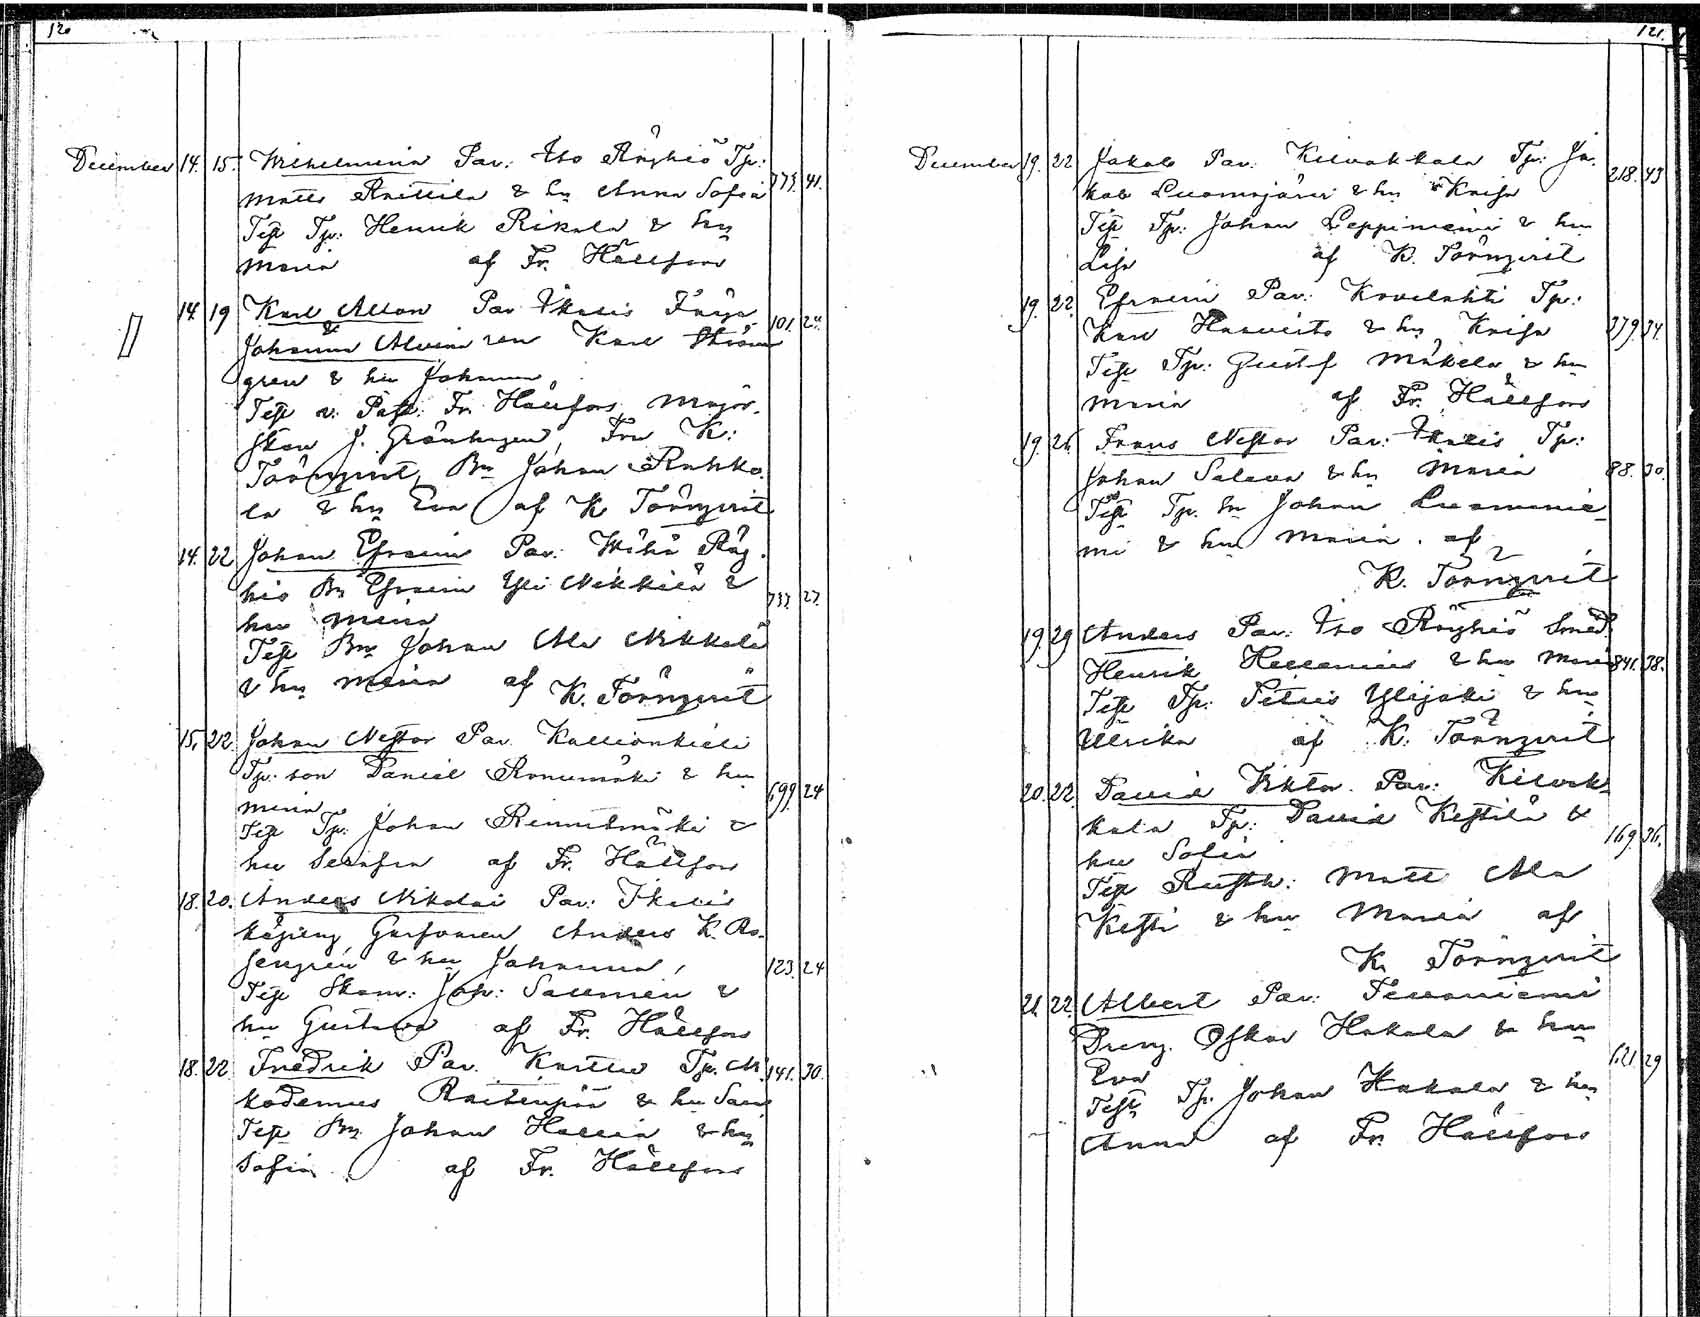 120
December 14. 15. Wilhelmina Par: Iso Röyhiö Tp:
Matts Knuttila & hu Anna Sofia 775. 41.
Test Tp: Henrik Rikala & hu
Maria af Fr. Hällfors
14. 19 Karl Allan Par Ikalis Färga 101. 24.
&
Johanna Alvina ren Karl Ström
gren & hu Johanna
Test v: Past: Fr. Hällfors, Major-
skan J. Grönhagen, Fru K:
Törnqvist, Bn Johan Ruhko-
la & hu Eva af K Törnqvist
14. 22 Johan Efraim Par: Wähä Röy-
hiö Bn Efraim Yli Nikkilä & 733. 27.
hu Maria
Test Bn Johan Ala Nikkilä
& hu Maria af K. Törnqvist
15. 22. Johan Nestor Par. Kallionkieli
Tp: son Daniel & hu 699. 24
Maria
Test Tp: Johan &
hu Serafia af Fr. Hällfors
18. 20. Anders Nikolai Par: Ikalis
köping, Garfvaren Anders K. Ro-
sengren & hu Johanna, 123. 24
Test Skom: Joh: Sallmén &
hu Gustava af Fr. Hällfors
18. 22 Fredrik Par. Kurttu Tp. Ni- 141. 30.
kodemus & hu
Test Bn Johan & hu
Sofia af Fr. Hällfors
121.
December 19. 22 Jakob Par: Kilvakkala Tp: Ja-
kob Luomajärvi & hu Kaisa 218. 43
Test Tp: Johan Leppiniemi & hu
Lisa af K. Törnqvist
19. 22. Efraim Par: Kovelahti Tp:
Karl & hu Kaisa 379. 34.
Test Tp: Gustaf Mäkelä & hu
Maria af Fr. Hällfors
19. 26 Frans Nestor Par: Ikalis Tp:
Johan Salava & hu Maria 88. 30.
Test Tp. Johan Luomanie-
mi & hu Maria. af
K. Törnqvist
19. 29 Anders Par: Iso Röyhiö Smed
Henrik & hu Maria 841. 38.
Test Tp: Petter Ylijoki & hu
Ulrika af K. Törnqvist
20. 22. David Viktor. Par: Kilvak-
kala Tp: David Kestilä & 169. 36.
hu Sofia
Test Rusth: Matt Ala
Kesti & hu Maria af
K. Törnqvist
21. 22. Albert Par: Tevaniemi
Dreng Oskar Hakala & hu
Eva 621. 29
Test Tp. Johan Hakala & hu
Anna af Fr. Hällfors